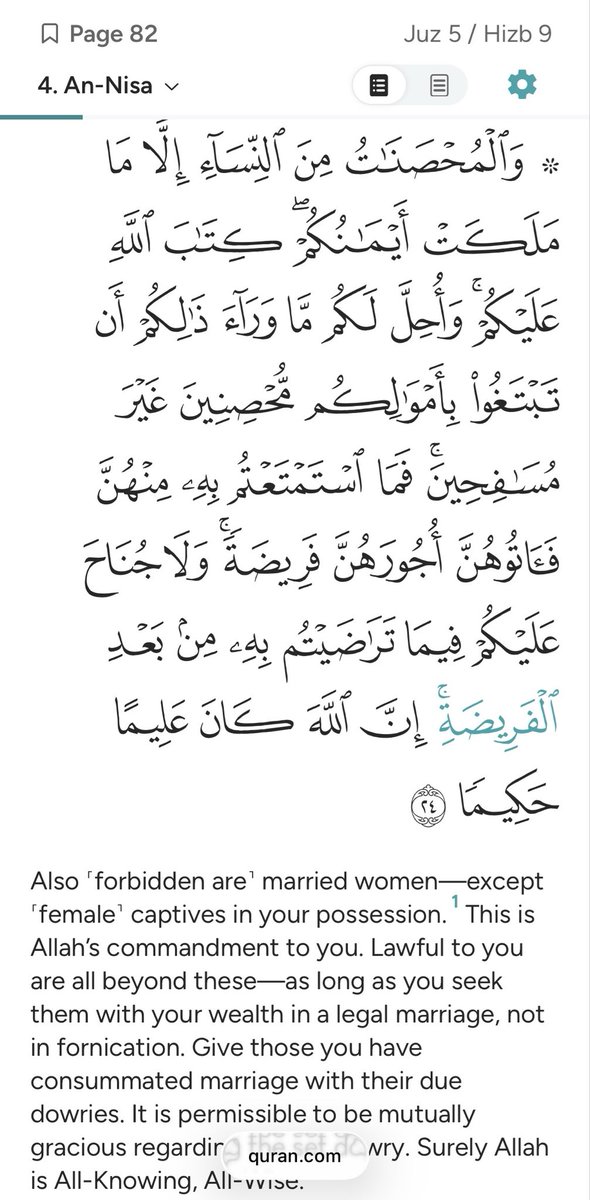 Page 82
Juz 5 / Hizb 9
4. An-Nisa
۞ وَٱلْمُحْصَنَـٰتُ مِنَ ٱلنِّسَآءِ إِلَّا مَا
مَلَكَتْ أَيْمَـٰنُكُمْ ۖ كِتَـٰبَ ٱللَّهِ
عَلَيْكُمْ ۚ وَأُحِلَّ لَكُم مَّا وَرَآءَ ذَٰلِكُمْ أَن
تَبْتَغُوا۟ بِأَمْوَٰلِكُم مُّحْصِنِينَ غَيْرَ
مُسَـٰفِحِينَ ۚ فَمَا ٱسْتَمْتَعْتُم بِهِۦ مِنْهُنَّ
فَـَٔاتُوهُنَّ أُجُورَهُنَّ فَرِيضَةً ۚ وَلَا جُنَاحَ
عَلَيْكُمْ فِيمَا تَرَٰضَيْتُم بِهِۦ مِنۢ بَعْدِ
ٱلْفَرِيضَةِ ۚ إِنَّ ٱللَّهَ كَانَ عَلِيمًا
حَكِيمًا ٢٤
Also ˹forbidden are˺ married women—except
˹female˺ captives in your possession. 1 This is
Allah’s commandment to you. Lawful to you
are all beyond these—as long as you seek
them with your wealth in a legal marriage, not
in fornication. Give those you have
consummated marriage with their due
dowries. It is permissible to be mutually
gracious regarding the set dowry. Surely Allah
is All-Knowing, All-Wise.
quran.com